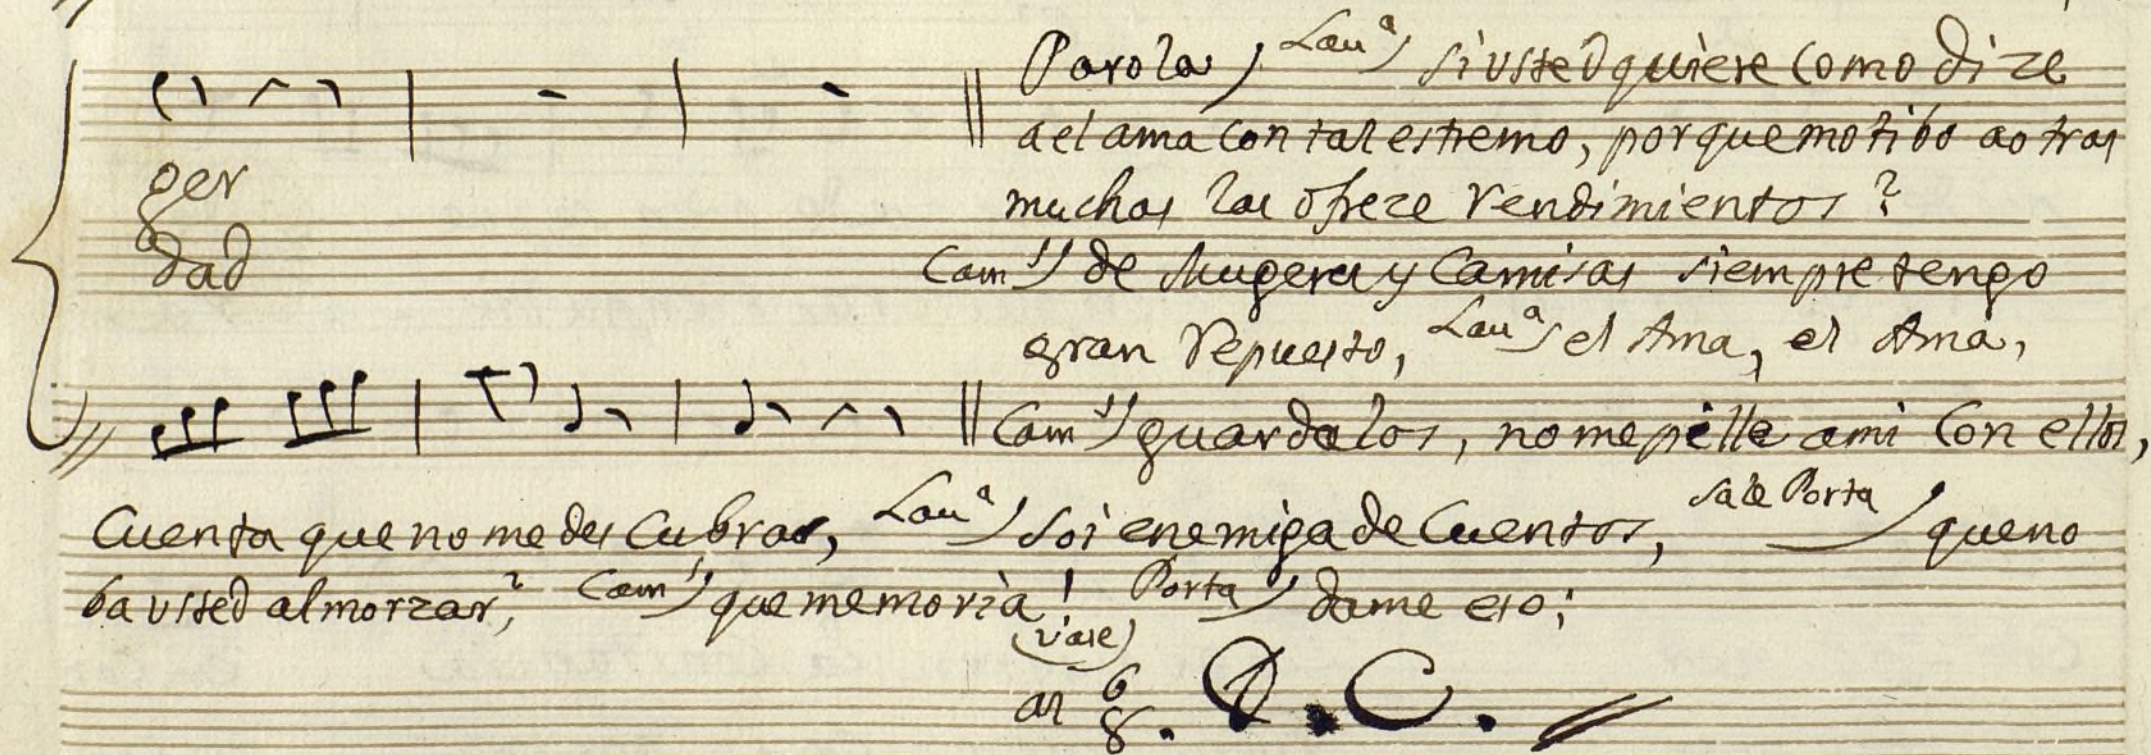 Parola, Lau.ª si usted quiere como dize
ael ama con tal estremo, por que motibo a otras
ger
muchas las ofreze rendimientos?
dad
Cam.s de Mugeres y Camisas siempre tengo
gran Repuesto, Lau.ª el Ama, el Ama,
Cam.s guardalos, no me pille ami Con ellos,
Cuenta que no me des Cubras, Lau.ª soi enemiga de Cuentos, sale Porta que no
ba usted almorzar? Cam.s que memoria! Porta dame eso;
(vase)
al 6
8. D.C.